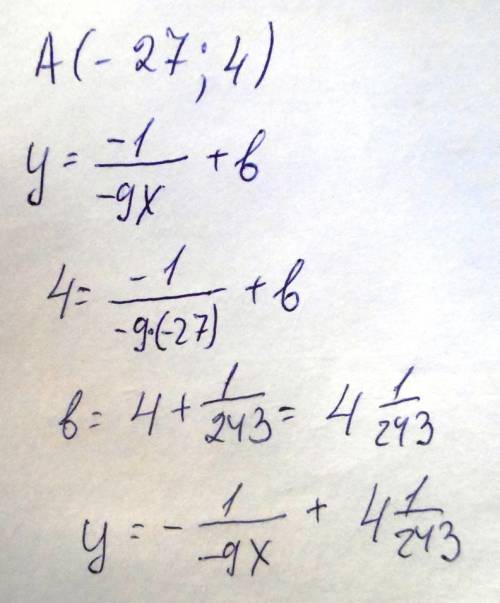 A(-27; 4)
y = -1/-9x + в
4 = -1/-9·(-27) + в
в = 4 + 1/243 = 4 1/243
y = - 1/-9x + 4 1/243